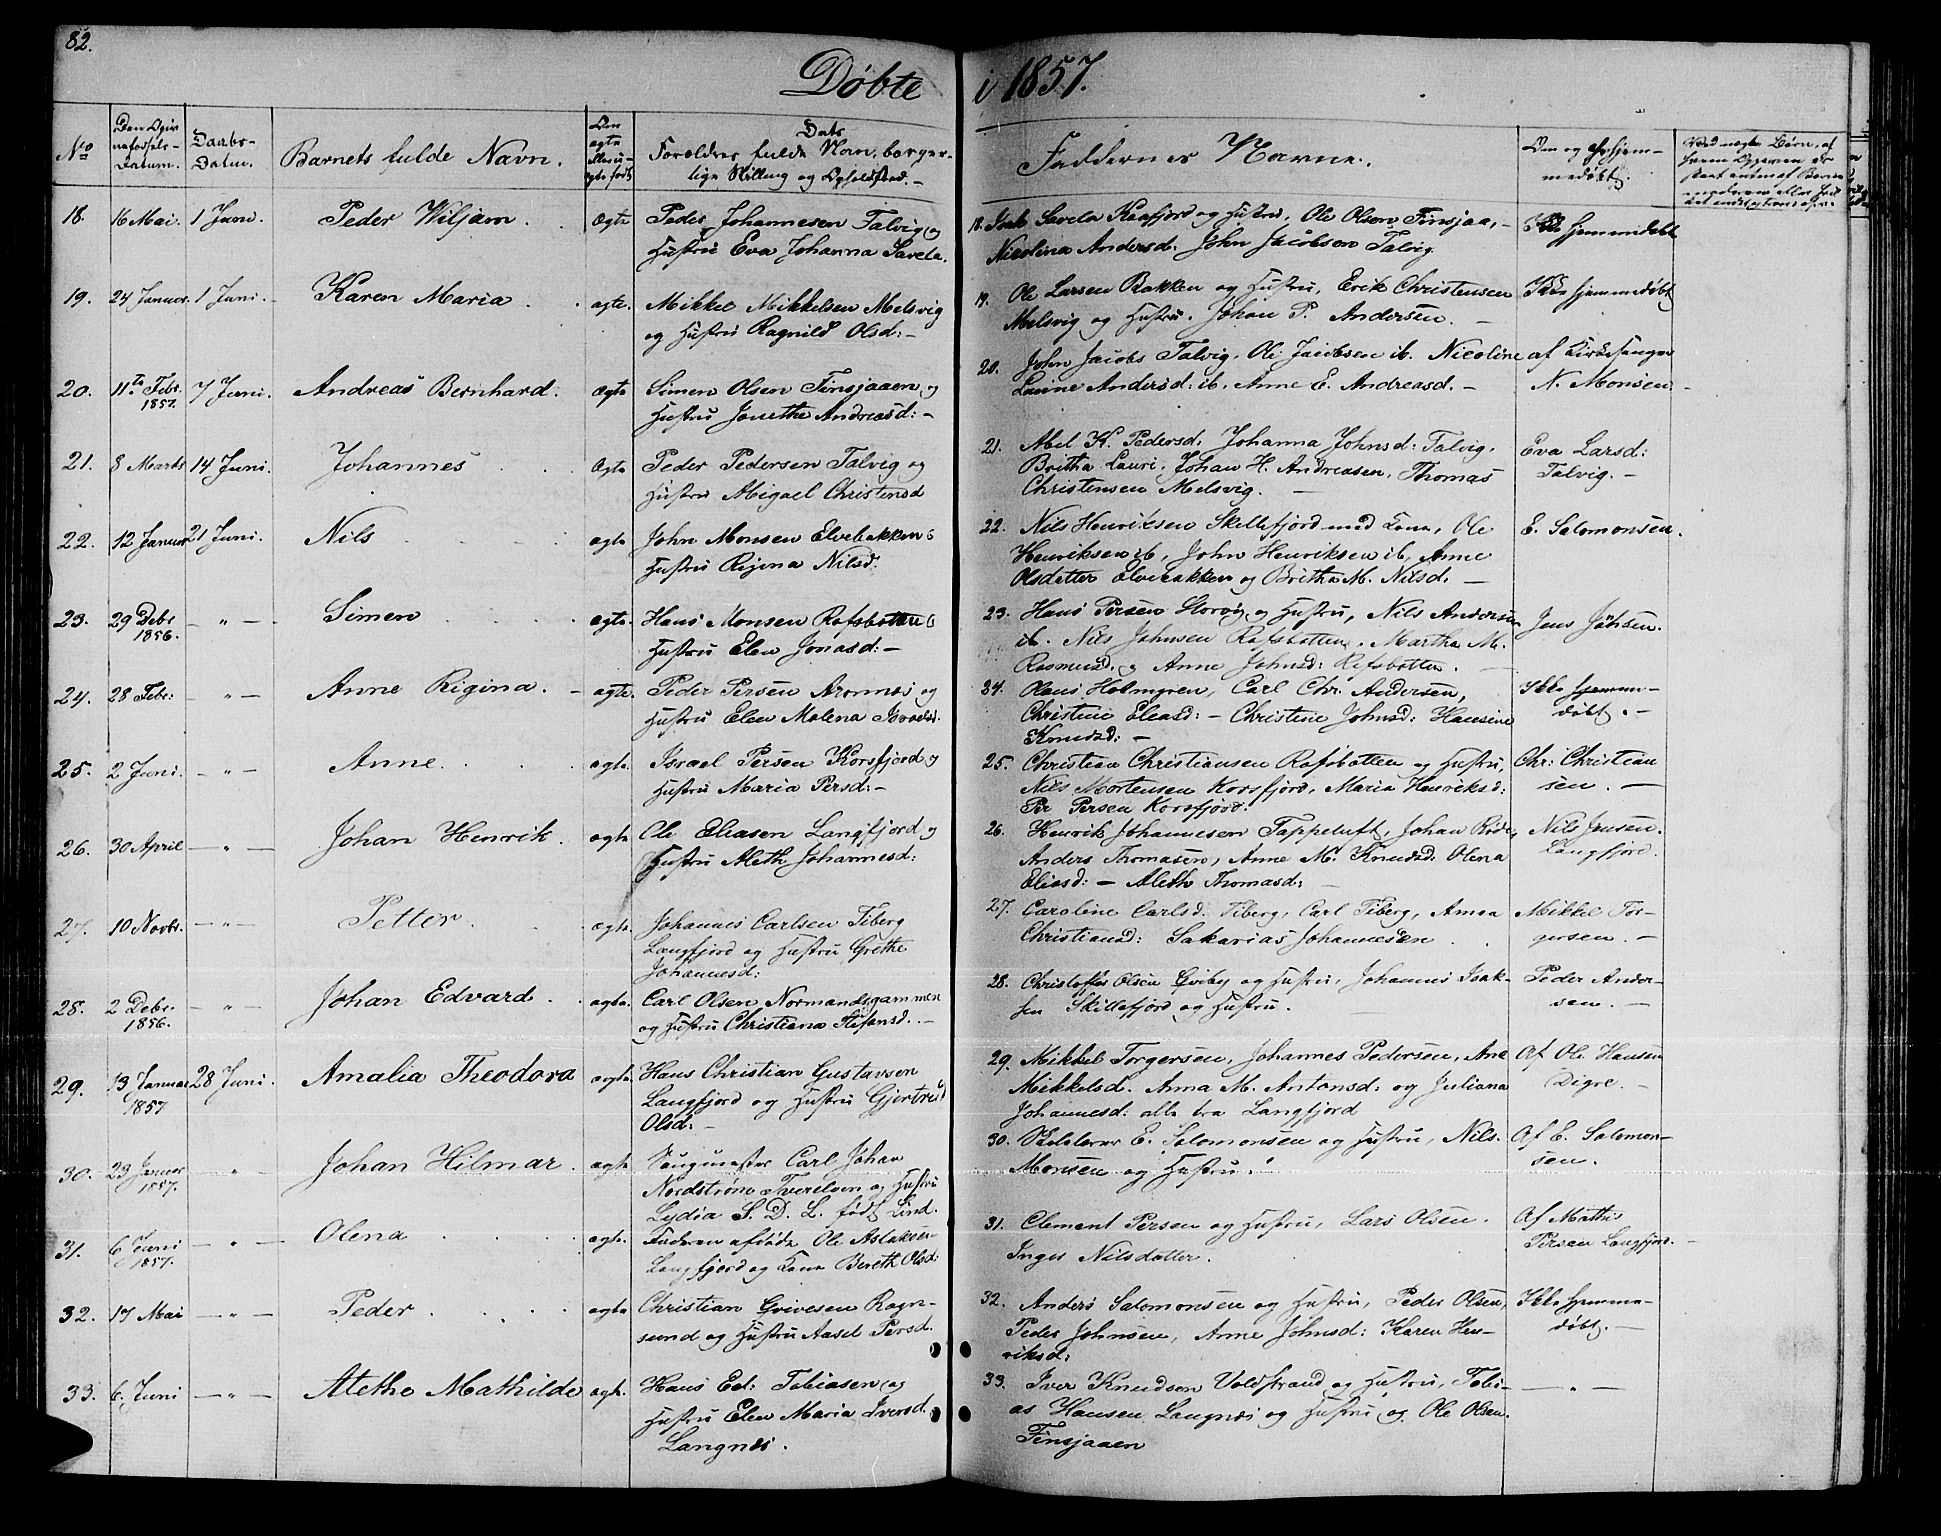 82.
Døbte i 1857.
No
Datum.
Daabs-
Datum.
Barnets fulde Navn.
Forældres fulde Navn, borger-
lige Stilling og Opholdssted.
Faddernes Navne.
Om og hjem-
medøbt.
18. 16 Mai. 1 Juni. Peder Wiljam. ægte
Peder Johannesen Talvig og
Hustru Eva Johanna Savela.
18. Isak Savela Kaafjord og Hustru, Ole Olsen Tinsjaa,
Nicolina Andersd. John Jacobsen Talvig
Ikke hjemmedøbt
19. 24 Januar. 1 Juni. Karen Maria ægte.
Mikkel Mikkelsen Melsvig
og Hustru Ragnild Olsd:
19. Ole Larsen Bakken og Hustru, Erik Christensen
Melsvig og Hustru. Johan P. Andersen.
Ikke hjemmedøbt
20. 11te Febr. 1857. 7 Juni. Andreas Bernhard. ægte
Simen Olsen Tinsjaaen og
Hustru Jonethe Andreasd:
20. John Jacobs Talvig, Ole Jacobsen ib. Nicoline
Lavine Andersd: ib. Anne E. Andreasd.
af Kirkesanger
N. Monsen.
21. 8 Marts 14 Juni. Johannes ægte
Peder Pedersen Talvig og
Hustru Abigael Christensd
21. Abel K. Pedersd: Johanna Johnsd: Talvig,
Britha Lauri, Johan H. Andreasen, Thomas
Christensen Melsvig.
Eva Larsd:
Talvig.
22. 12 Januar 21 Juni. Nils ægte
John Monsen Elvebakken
Hustru Rigina Nilsd:
22. Nils Henriksen Skillefjord med Kone, Ole
Henriksen ib, John Henriksen ib, Anne
Olsdatter Elvebakken og Britha M. Nilsd.
E. Salomonsen.
23. 29 Debr. 1856. " Simen ægte
Hans Monsen Rafsbotten
Hustru Elen Jonasd:
23. Hans Persen Storvig og Hustru, Nils Andersen
ib. Nils Johnsen Rafsbotten, Martha M.
Rasmusd. og Anne Johnsd: Rafsbotten.
Jens Johsen.
24. 28 Febr: " Anne Rigina. ægte.
Peder Persen Aronnes og
Hustru Elen Malena Israelsd.
24. Olaus Holmgren, Carl Chr. Andersen,
Christine Eleasd: Christine Johnsd: Hansine
Knudsd:
Ikke hjemme-
døbt.
25. 2 Juni. " Anne ægte.
Israel Persen Korsfjord og
Hustru Maria Persd:
25. Christian Christiansen Rafsbotten og Hustru,
Nils Mortensen Korsfjord, Maria Henriksd:
Pr Persen Korsfjord.
Chr: Christian
sen.
26. 30 April " Johan Henrik ægte
Ole Eleasen Langfjord og
Hustru Aleth Johannesd:
26. Henrik Johannesen Tappeluft, Johan
Anders Thomasen, Anne M. Knudsd: Olena
Eliasd: Aleth Thomasd:
Nils Jensen.
Langfjord.
27. 10 Novbr. " Petter. ægte.
Johannes Carlsen Tiberg
Langfjord og Hustru Grethe
Johannesd:
27. Caroline Carlsd. Tiberg, Carl Tiberg, Amaa
Christiansd: Sakarias Johannesen
Mikkel Tor-
gersen.
28. 2 Debr. 1856. " Johan Edvard ægte.
Carl Olsen Normandsgammen
og Hustru Christiana Stefansd.
28. Christoffer Olsen og Hustru, Johannes Isak-
sen Skillefjord og Hustru.
Peder Ander-
sen.
29. 13 Januar 1857 28 Juni. Amalia Theodora ægte
Hans Christian Gustavson
Langfjord og Hustru Gjertrud
Olsd:
29. Mikkel Torgersen, Johannes Pedersen, Ane
Mikkelsd. Anna M. Antonsd: og Juliana
Johannesd. alle fra Langfjord
Af Ole Hansen
Digre.
30. 23 Januar 1857. " Johan Hilmar ægte
Carl Johan
Nordstrøm Tverelven og Hustru
Lydia S. D. L. født Lind.
30. Skolelærer E. Salomonsen og Hustru, Nils.
Monsen og Hustru.
Af E. Salomon-
sen.
31. 6 Juni 1857. " Olena ægte.
Faderen afdøde Ole Aslaksen
Langfjord og Kone Bereth Olsd:
31. Clement Persen og Hustru, Lars Olsen.
Inger Nilsdatter.
Af Mathis
Persen Langfjord.
32. 17 Mai " Peder ægte
Christian Grivesen Rogn-
sund og Hustru Aasel Persd.
32. Anders Salomonsen og Hustru, Peder Olsen,
Peder Johnsen, Anne Johnsd: Karen Hen-
riksd:
Ikke hjemme-
døbt.
33. 6. Juni " Alethe Mathilde ægt.
Hans Ed: Tobiasen og
Hustru Elen Maria Iversd.
Langnes.
33. Iver Knudsen Voldstrand og Hustru, Tobi-
as Hansen Langnes og Hustru og Ole Olsen
Tinsjaaen
"